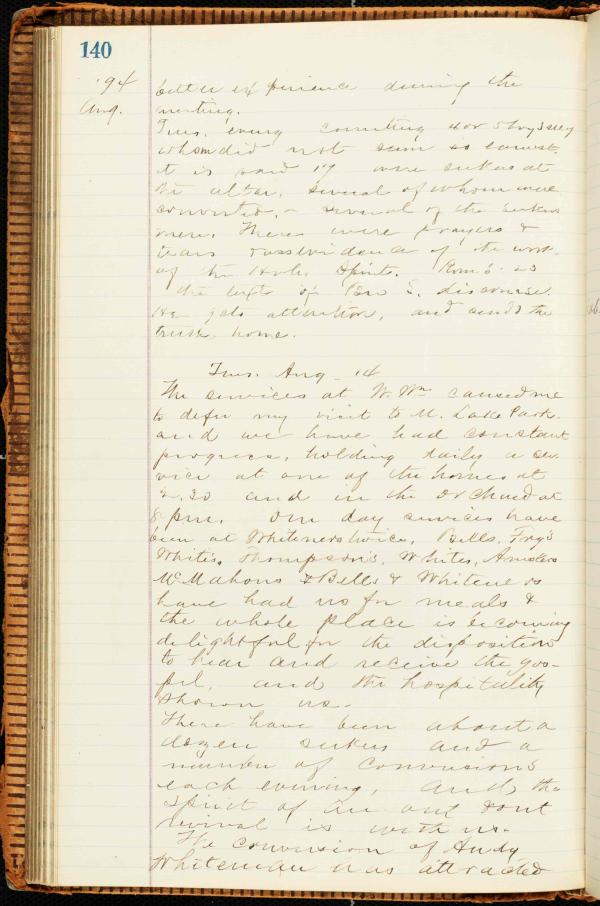 140
'94
Aug.
better experience during the
meeting.
Tues. eveng counting 4 or 5 boys
whom did not seem so earnest.
it is said 17 were seekers at
the altar, several of whom were
converted, - several of the seekers
men. There were prayers &
tears evidence of the work
of the Holy Spirit. Rom 6-23
the text of Bro S. discourse.
He gets attention, and sends the
truth home.
Tues. Aug - 14
The services at W. Wm caused me
to defer my visit to M. Lake Park.
and we have had constant
progress, holding daily a ser-
vice at one of the homes at
2.30 and in the orchard at
8 pm. Our day services have
been at Whiteners twice, Bells, Frys
Whites, Thompsons, Whites,
McMahons & Bells & Whiteners
have had us for meals &
the whole place is becoming
delightful for the disposition
to hear and receive the gos-
pel, and the hospitality
shown us.
There have been about a
dozen seekers and a
number of conversions
each evening, and the
Spirit of an out &out
revival is with us.
The conversion of Andy
Whiteman was attracted